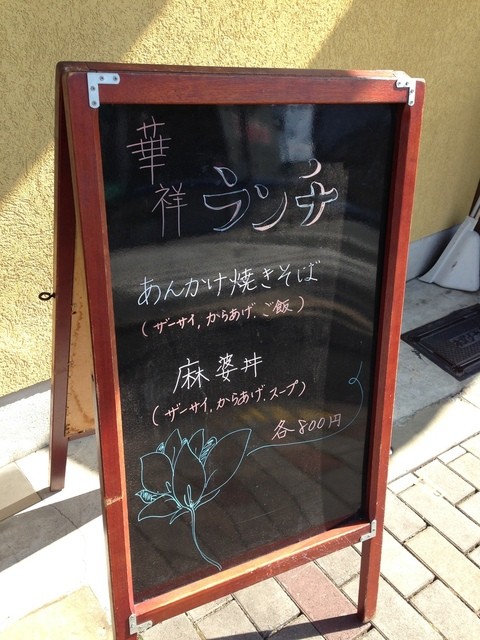 華祥 ランチ
あんかけ焼きそば
(ザーサイ,からあげ,ご飯)
麻婆丼
(ザーサイ,からあげ,スープ)
各800円